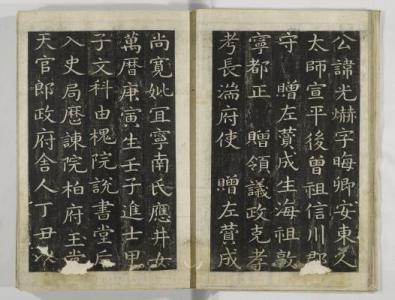 公諱光爀字晦卿安東人
太師宣平後曾祖信川郡
守 贈左贊成生海祖敦
寧都正 贈領議政克孝
考長湍府使 贈左贊成
尚寬妣冝寧南氏應井女
萬曆庚寅生壬子進士甲
子文科由槐院說書堂后
入史局歷諫院柏府玉堂
天官郎政府舍人丁丑